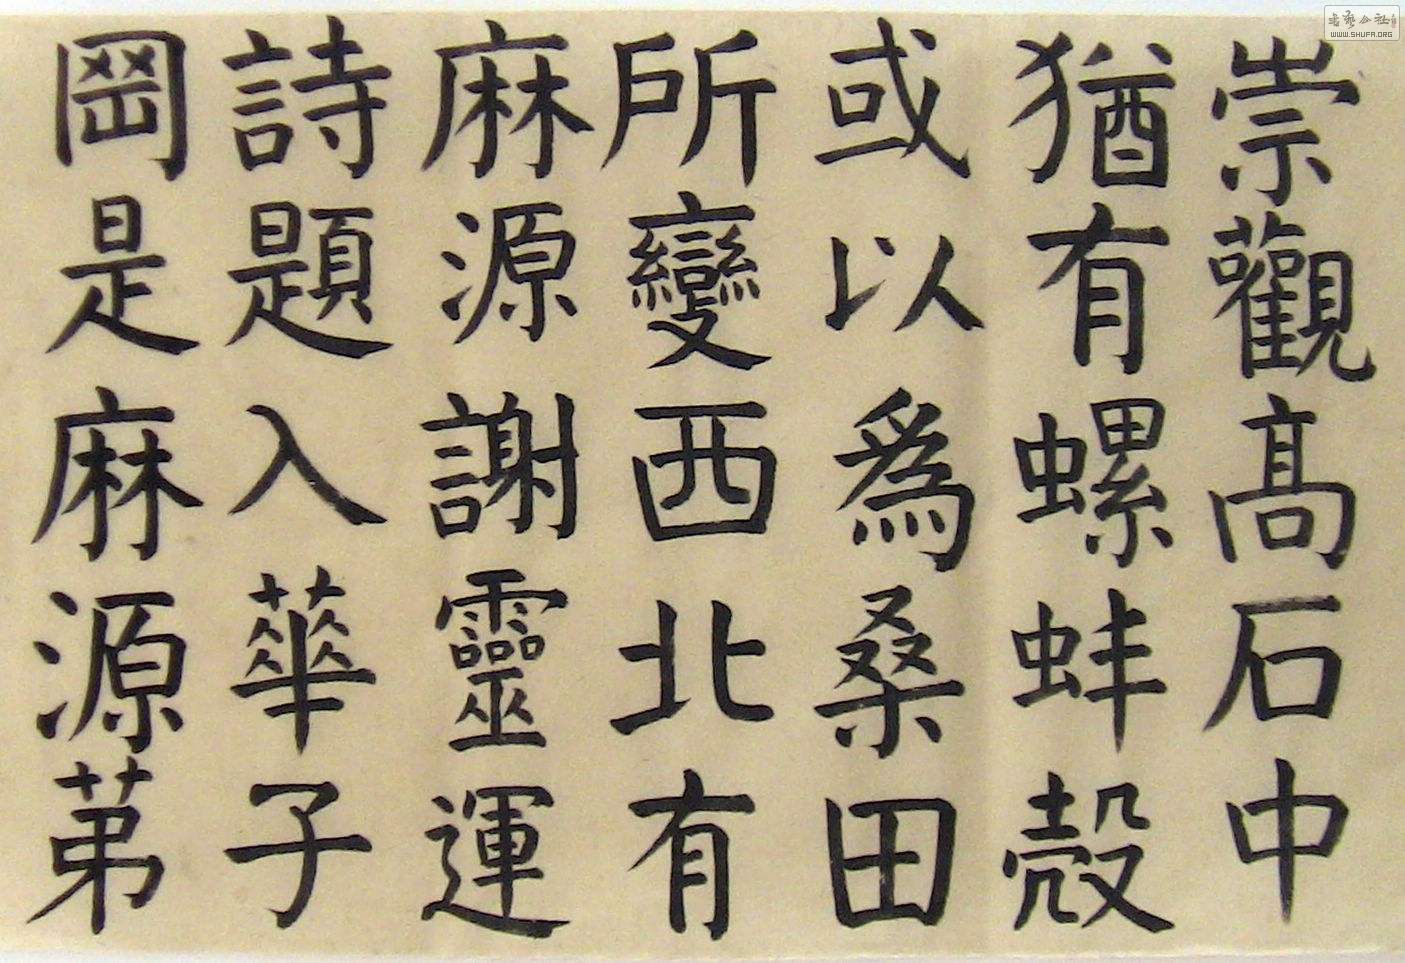 崇觀髙石中
猶有螺蚌殼
或以爲桑田
所變西北有
麻源謝靈運
詩題入華子
岡是麻源苐
WWW.SHUFA.ORG